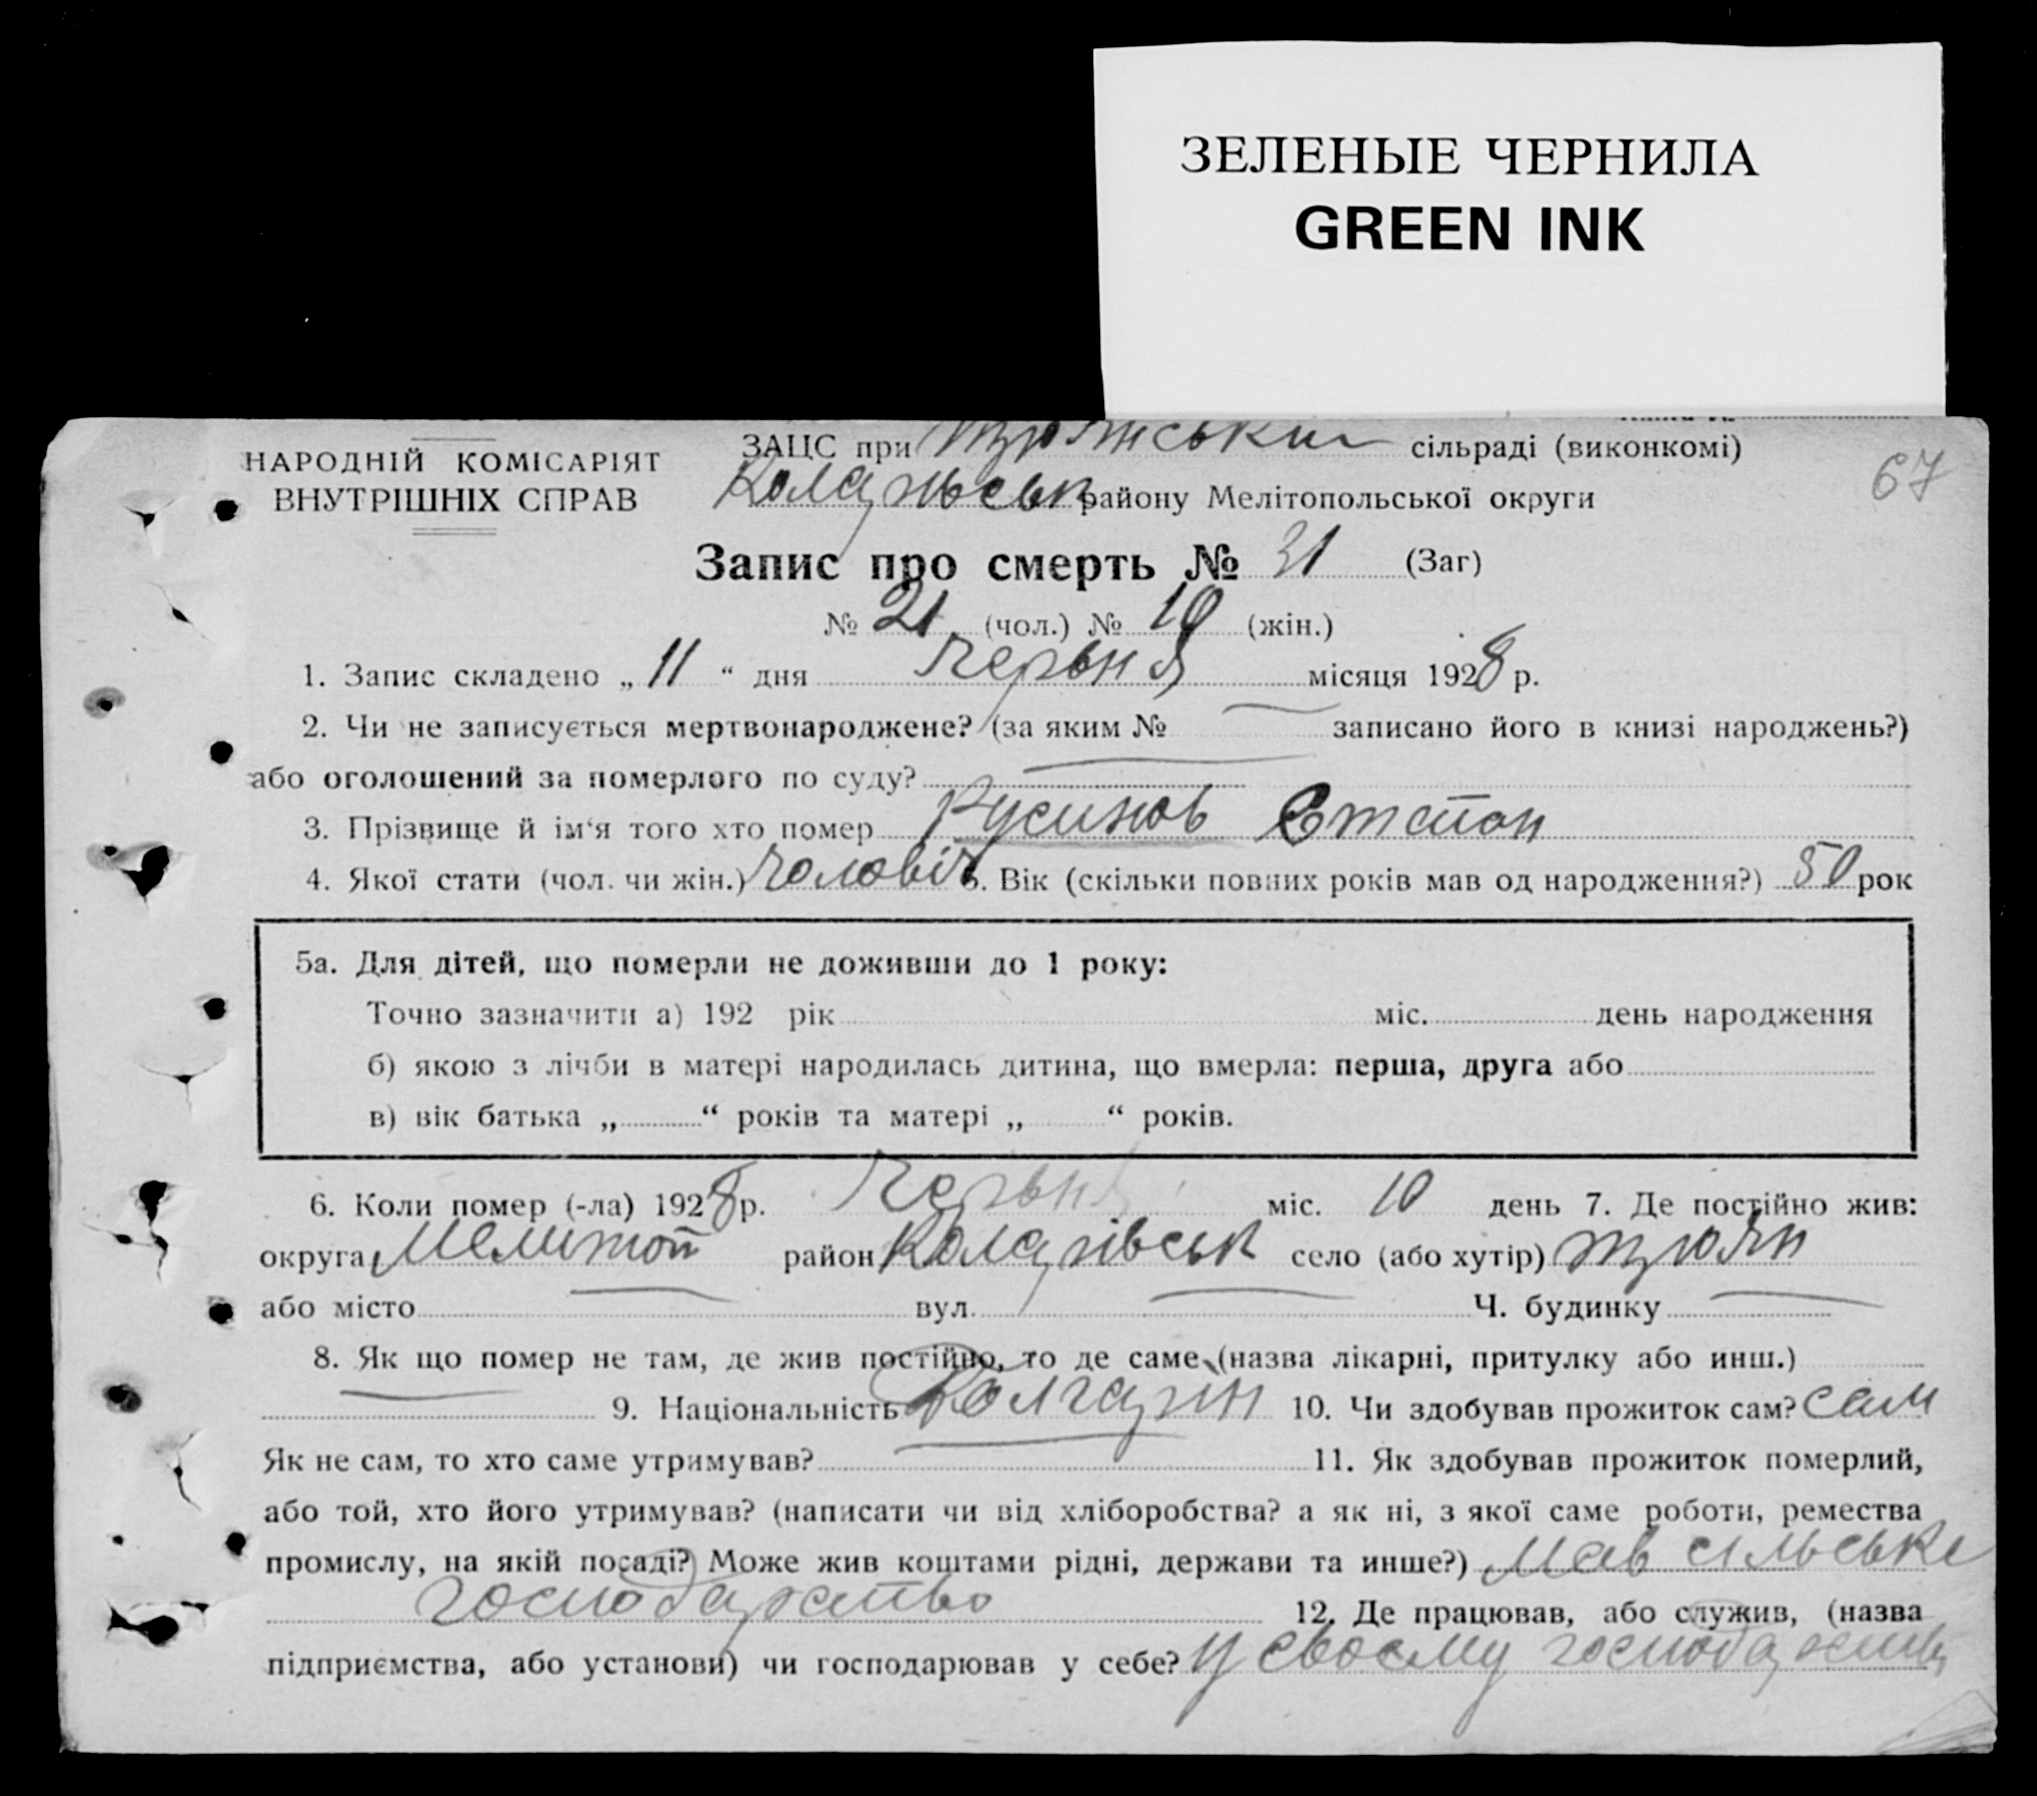 ЗЕЛЕНЫЕ ЧЕРНИЛА
GREEN INK
НАРОДНІЙ КОМІСАРІЯТ
ВНУТРІШНІХ СПРАВ
ЗАЦС при сільраді (виконкомі)
району Мелітопольської округи
67
Запис про смерть № 31 (Заг)
№ 21 (чол.) № 10 (жін.)
1. Запис складено „ 11 “ дня червня місяця 1928 р.
2. Чи не записується мертвонароджене? (за яким № записано його в книзі народжень?)
або оголошений за померлого по суду?
3. Прізвище й ім‘я того хто помер Русинов Степан
4. Якої стати (чол. чи жін.) чоловіч 5. Вік (скільки повних років мав од народження?) 50 рок
5а. Для дітей, що померли не доживши до 1 року:
Точно зазначити а) 192 рік міс. день народження
б) якою з лічби в матері народилась дитина, що вмерла: перша, друга або
в) вік батька „ “ років та матері „ “ років.
6. Коли помер (-ла) 1928 р. червня міс. 10 день 7. Де постійно жив:
округа Мелитоп район село (або хутір)
або місто вул. Ч. будинку
8. Як що помер не там, де жив постійно, то де саме (назва лікарні, притулку або инш.)
9. Національність Болгарин 10. Чи здобував прожиток сам? сам
Як не сам, то хто саме утримував? 11. Як здобував прожиток померлий,
або той, хто його утримував? (написати чи від хліборобства? а як ні, з якої саме роботи, ремества
промислу, на якій посаді? Може жив коштами рідні, держави та инше?) мав сільське
господарство 12. Де працював, або служив, (назва
підприємства, або установи) чи господарював у себе? у своєму господарстві